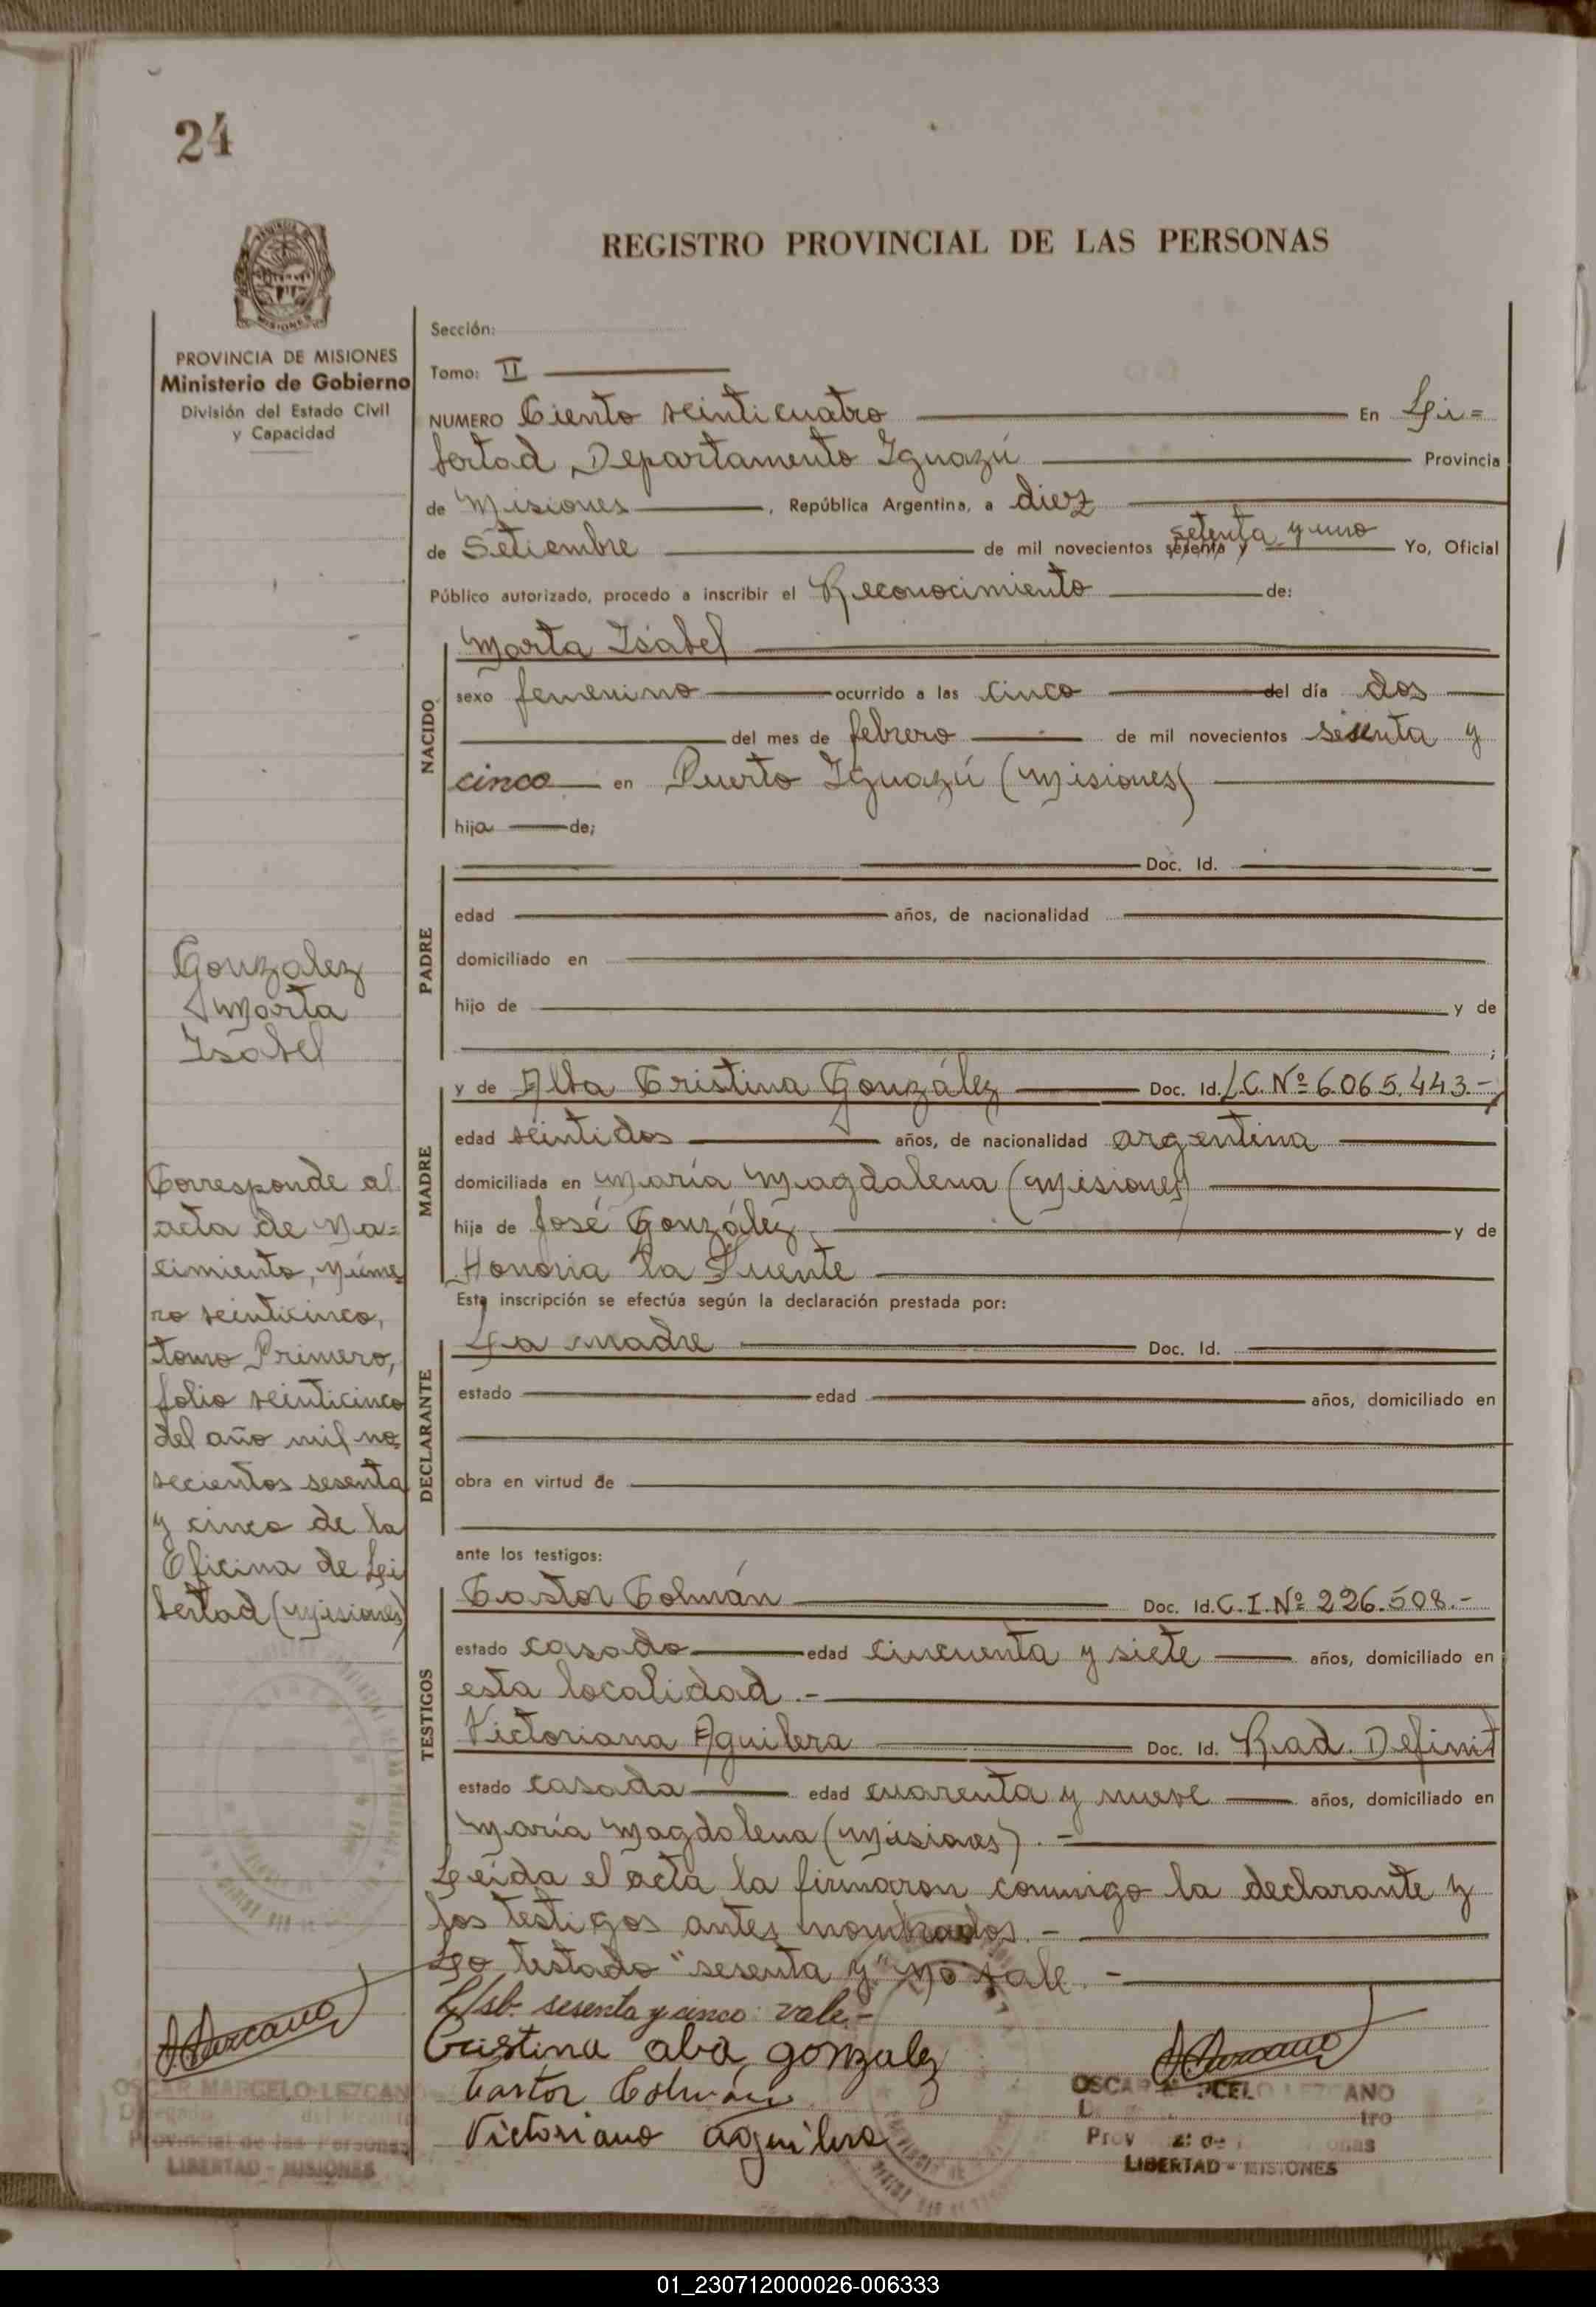 24
REGISTRO PROVINCIAL DE LAS PERSONAS
MISIONES
PROVINCIA DE MISIONES
Ministerio de Gobierno
División del Estado Civil
y Capacidad
Gonzalez
Marta
Isabel
Corresponde al
acta de na=
cimiento, núme
ro veinticinco,
tomo Primero,
folio veinticinco
del año mil no
vecientos sesenta
y cinco de la
Oficina de Li
bertad (Misiones)
OSCAR MARCELO LEZCANO
Delegado del Registro
Provincial de las Personas
LIBERTAD - MISIONES
Sección:
Tomo: II
NUMERO Ciento veinticuatro En Li=
bertad Departamento Iguazú Provincia
de Misiones, República Argentina, a diez
setenta y uno
de Setiembre de mil novecientos sesenta y Yo, Oficial
Público autorizado, procedo a inscribir el Reconocimiento de:
NACIDO
Marta Isabel
sexo femenino ocurrido a las cinco del día dos
del mes de febrero de mil novecientos sesenta y
cinco en Puerto Iguazú (Misiones)
hija de;
PADRE
Doc. Id.
edad años, de nacionalidad
domiciliado en
hijo de y de
;
MADRE
y de Alba Cristina González Doc. Id. L.C. Nº 6.065.443.-
edad veintidos años, de nacionalidad argentina
domiciliada en María Magdalena (Misiones)
hija de José González y de
Honoria La Fuente
Esta inscripción se efectúa según la declaración prestada por:
DECLARANTE
La madre Doc. Id.
estado edad años, domiciliado en
obra en virtud de
ante los testigos:
TESTIGOS
Castor Colmán Doc. Id. C.I. Nº 226.508.-
estado casado edad cincuenta y siete años, domiciliado en
esta localidad.-
Victoriana Aguilera Doc. Id. Rad. Definit
estado casada edad cuarenta y nueve años, domiciliado en
María Magdalena (Misiones).-
Leída el acta la firmaron conmigo la declarante y
los testigos antes nombrados.-
Lo testado "sesenta y" no vale.-
L/sb. sesenta y cinco: vale.-
Cristina alba gonzalez
Castor Colmán
Victoriano aguilera
OSCAR LEZCANO
LIBERTAD - MISIONES
01_230712000026-006333